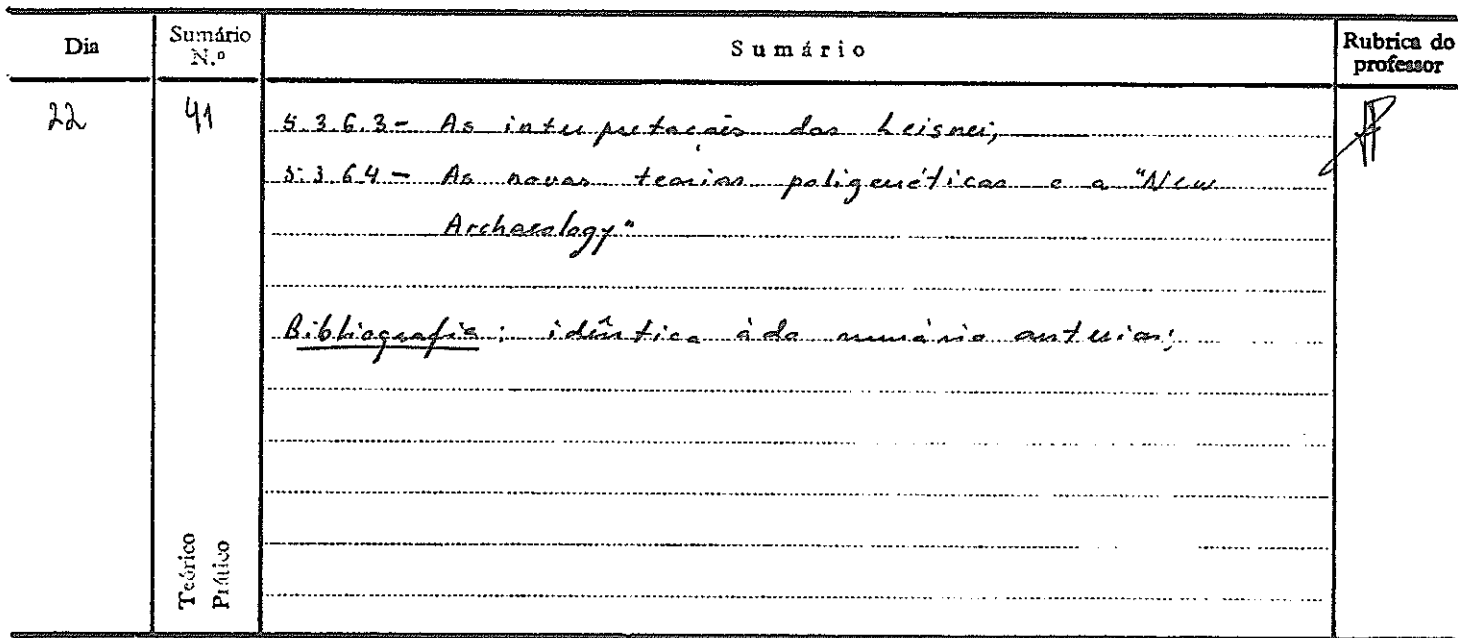 Dia
Sumário N.º
Sumário
Rubrica do professor
22
41
5.3.6.3- As interpretações dos Leisner;
5.3.6.4- As novas teorias poligenéticas e a "New
Archaeology"
Bibliografia: idêntica à do sumário anterior;
Teórico
Prático